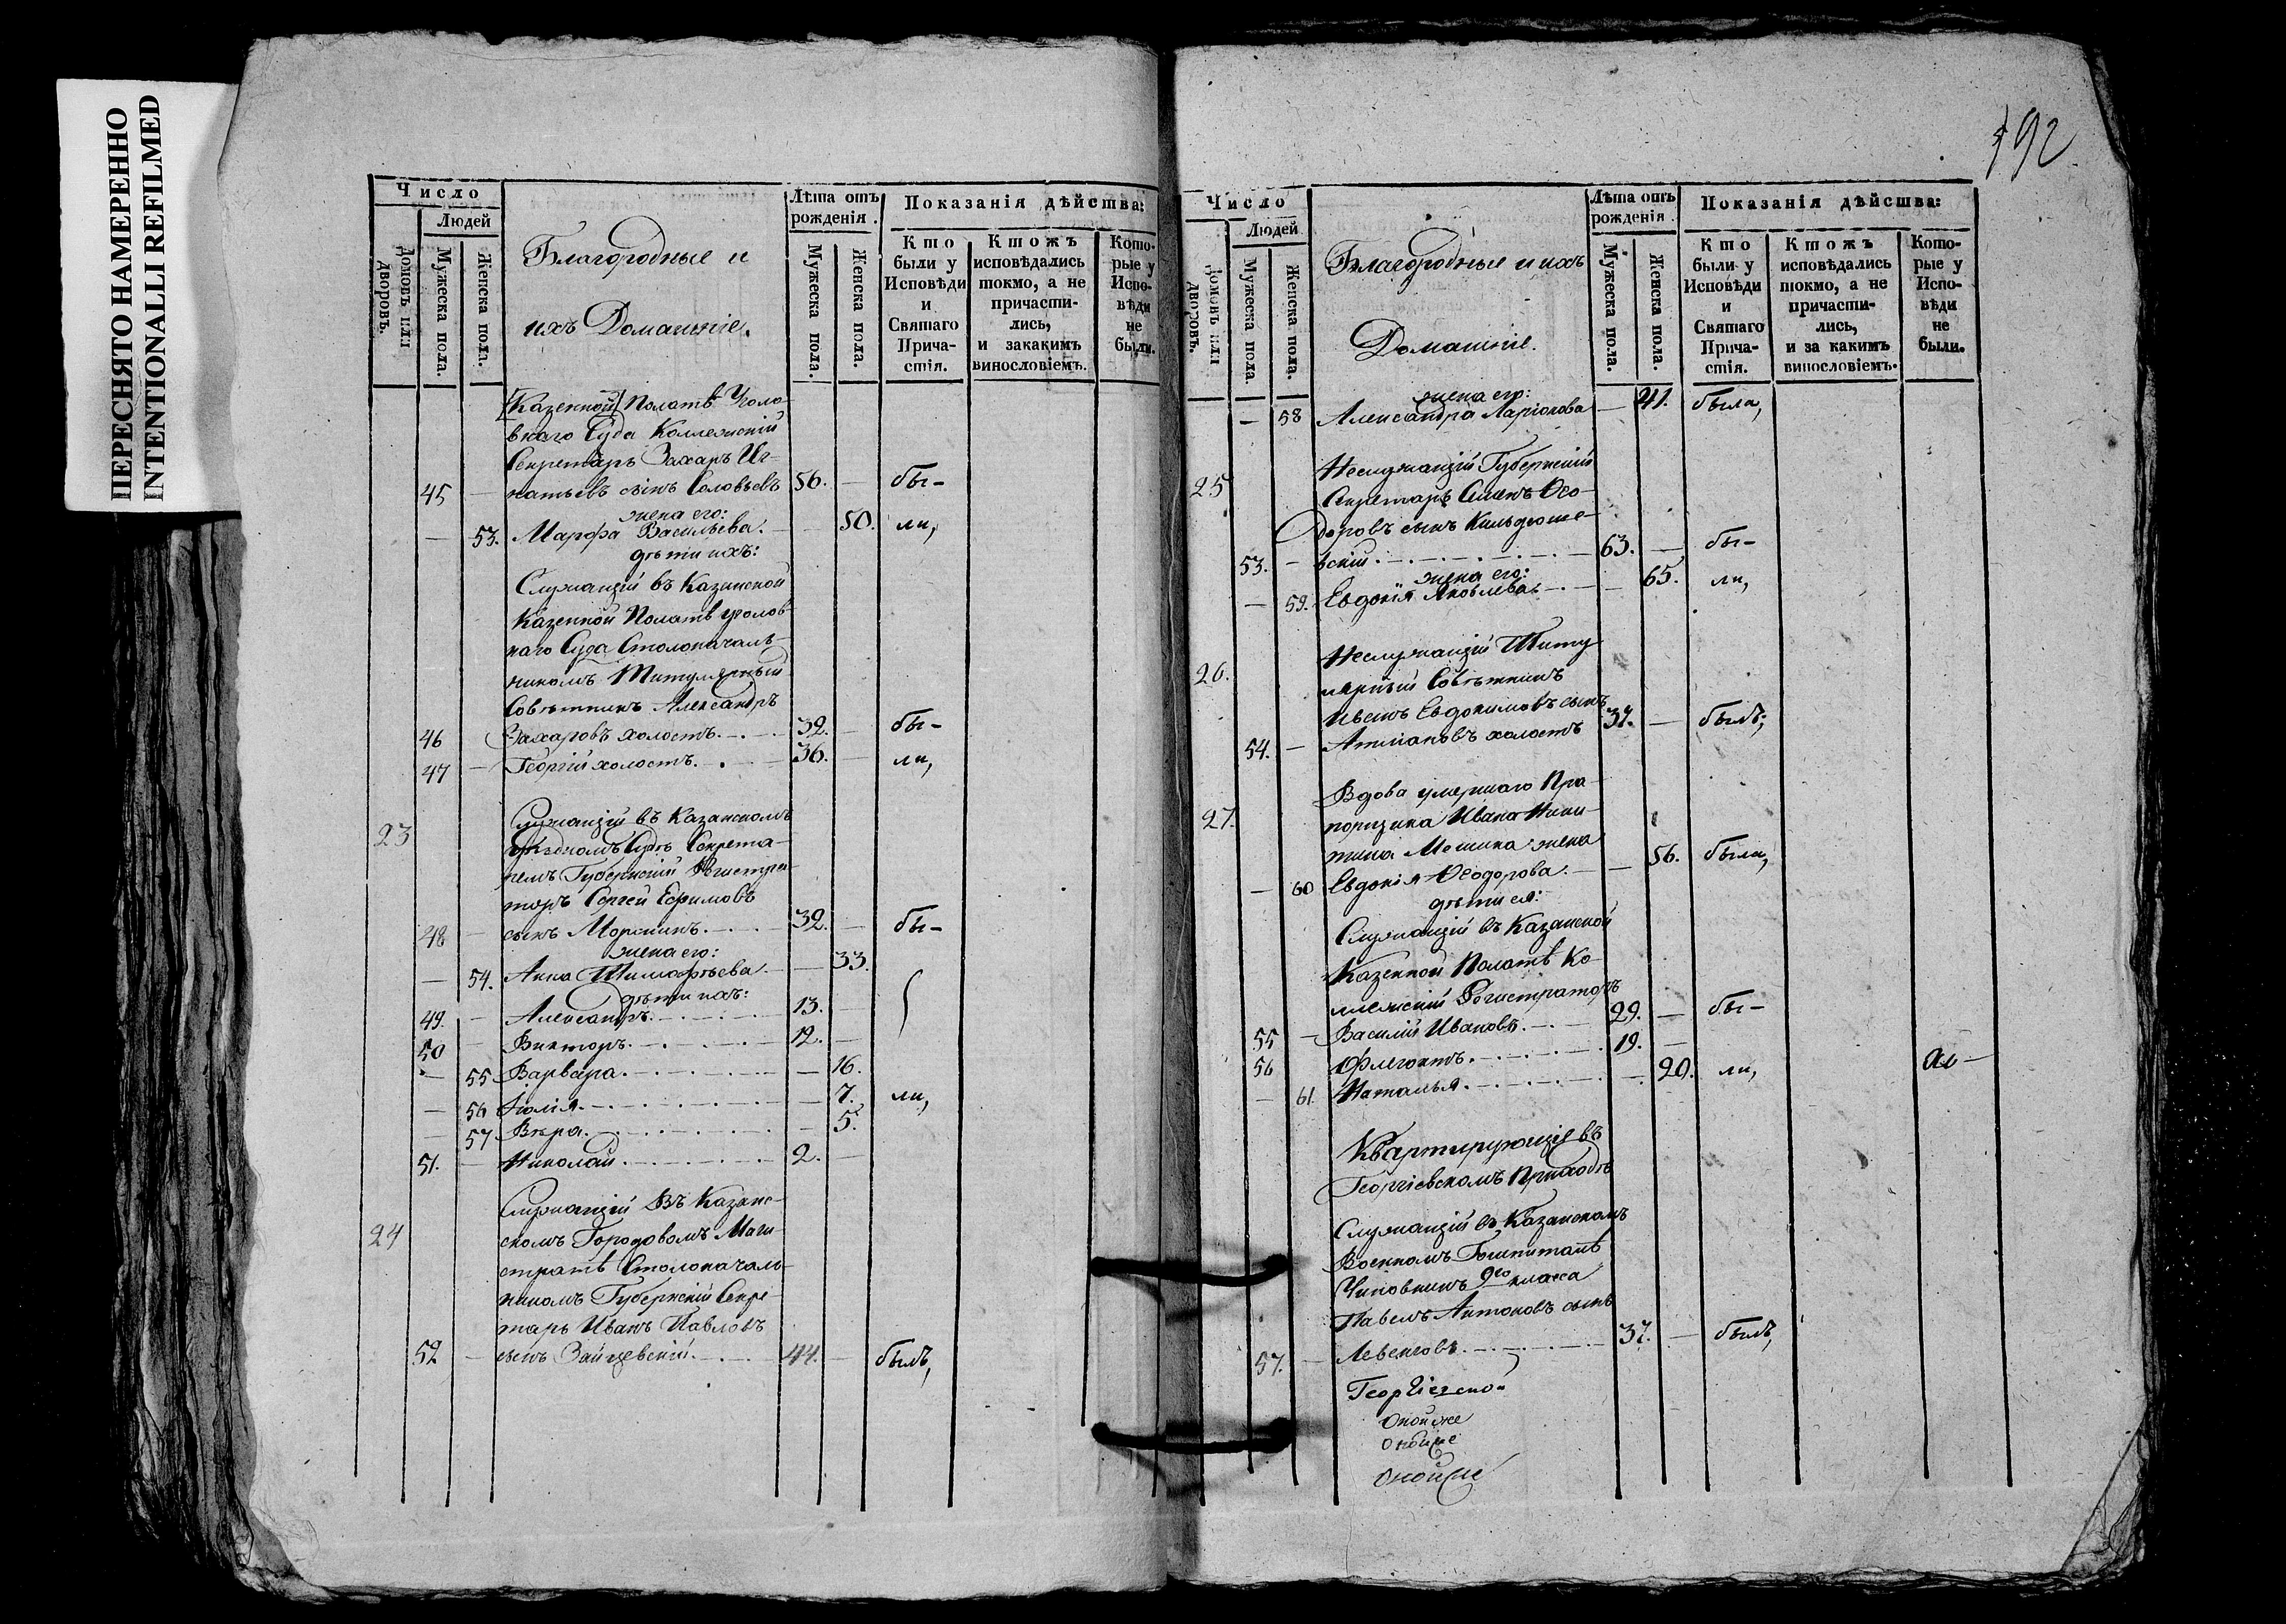 ПЕРЕСНЯТО НАМЕРЕННО
INTENTIONALLI REFILMED
192
Число
Людей
Домовъ или дворовъ.
Мужеска пола.
Женска пола.
Благородные и
ихъ Домашніе.
Лѣта отъ рожденія.
Мужеска пола.
Женска пола.
Показанія дѣйства:
Кто были у Исповѣди и Святаго Прича-стія.
Ктожъ исповѣдались токмо, а не причасти-лись, и закакимъ винословіемъ.
Кото-рые у Испо-вѣди не были.
Казенной Полатѣ Уголо
внаго Суда Коллежскій
Секретарь Захаръ Иг-
45 — натьевъ сынъ Соловьевъ 56. — бы-
жена его:
— 53. Марѳа Васильева. — 50. ли,
дѣти ихъ:
Служащій въ Казанской
Казенной Полатѣ уголов-
наго Суда Столоначаль-
никомъ Титулярный
Совѣтникъ Александръ
46 Захаровъ холостъ. 39. — бы-
47 — Георгій холостъ. 36. — ли,
23 Служащій въ Казанскомъ
Уѣздномъ Судѣ Секрета-
ремъ Губернскій Регистра
торъ Сергей Ефимовъ
48 — сынъ Моркинъ. 39. — бы-
жена его:
— 54. Анна Тимофѣева. — 33.
дѣти ихъ:
49. — Александръ. 13. —
50 — Викторъ. 12. —
— 55 Варвара. — 16.
— 56 Юлія. — 7. ли,
— 57 Вѣра. — 5.
51. — Николай. 2. —
24 Служащій Въ Казанс-
комъ Городовомъ Маги-
стратѣ Столоначаль-
никомъ Губернскій Секре-
тарь Иванъ Павловъ
52 — сынъ Зайцевскій. 44. — былъ,
Число
Людей
Домовъ или дворовъ.
Мужеска пола.
Женска пола.
Благородные и ихъ
Домашніе.
Лѣта отъ рожденія.
Мужеска пола.
Женска пола.
Показанія дѣйсшва:
Кто были у Исповѣди и Святаго Прича-стія.
Ктожъ исповѣдались токмо, а не причасти-лись, и за какимъ винословіемъ.
Кото-рые у Испо-вѣди не были.
жена его:
— 58 Александра Ларіонова — 41. была,
25 Неслужащій Губернскій
Секретарь Семенъ Ѳео-
доровъ сынъ Кильдюше-
53. — вскій. 63. — бы-
жена его:
— 59. Евдокія Яковлева. — 65. ли,
26. Неслужащій Титу
лярный Совѣтникъ
Иванъ Евдокимовъ сынъ
54. — холостъ 37. — былъ,
27. Вдова умершаго Пра-
порщика Ивана Ники-
тина жена
— 60 Евдокія Ѳеодорова. — 56. была,
дѣти ея:
Служащій въ Казанской
Казенной Полатѣ Ко-
ллежскій Регистраторъ
55 — Василій Ивановъ. 29. — бы-
56 Флегонтъ. 19. —
— 61. Наталья. — 20. ли,
Квартирующіе въ
Георгіевскомъ Приходѣ
Служащій въ Казанскомъ
Военномъ Гошпиталѣ
Чиновникъ 9го класса
Павелъ Антоновъ сынъ
57. — Левенговъ. 37. — былъ,